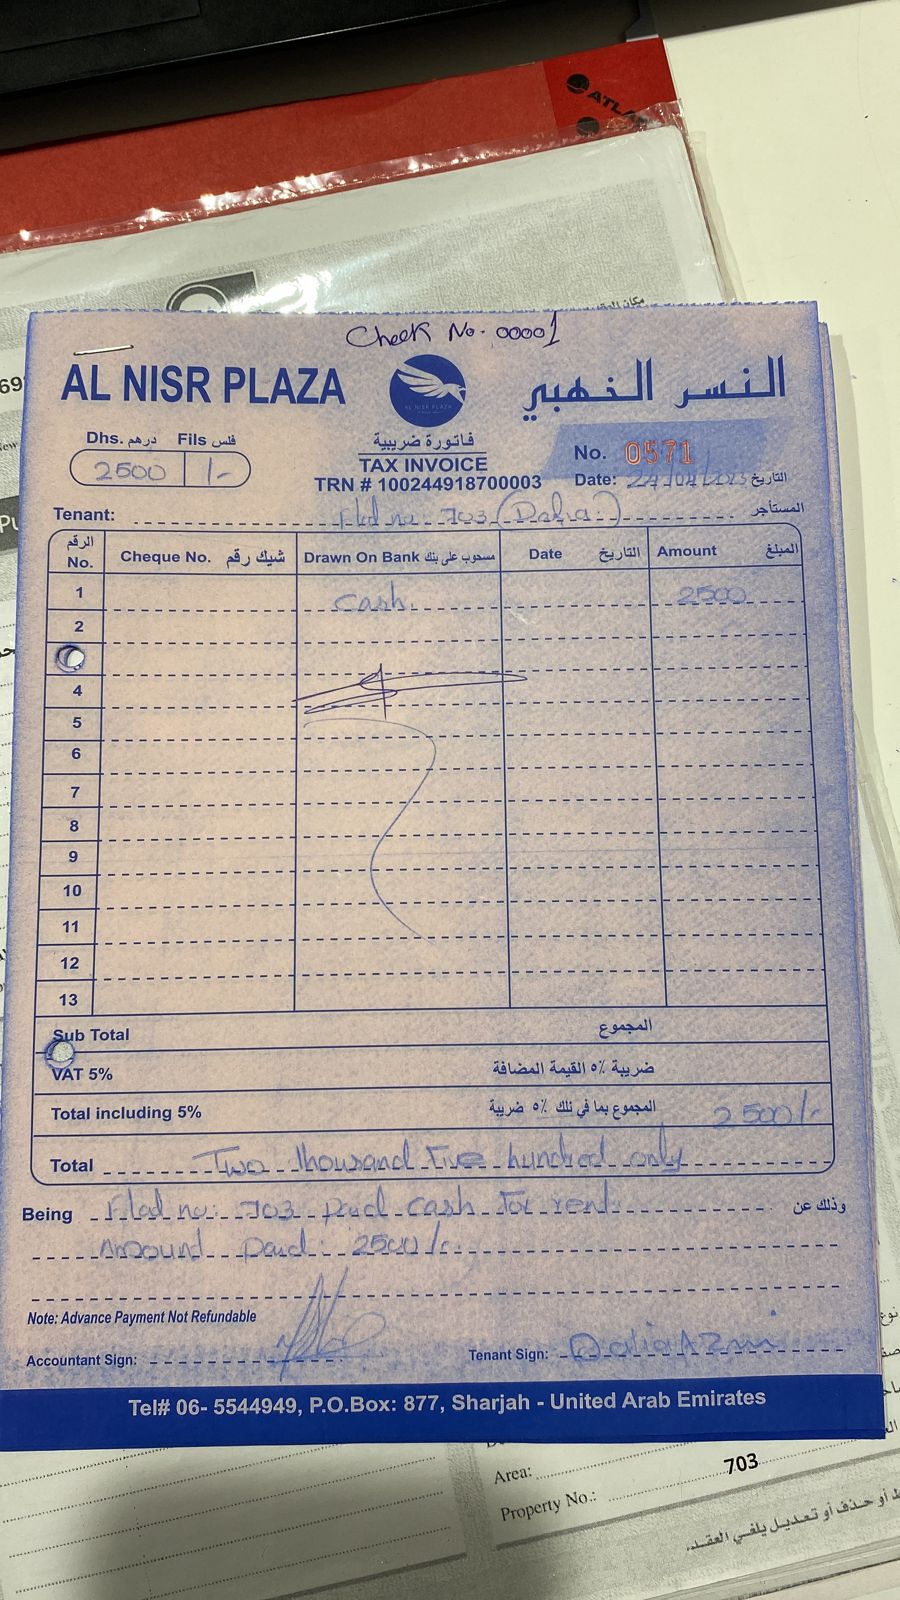 ATLA
69
Check No. 00001
AL NISR PLAZA
النسر الذهبي
AL NISR PLAZA
Dhs. درهم Fils فلس
2500 /-
فاتورة ضريبية
TAX INVOICE
TRN # 100244918700003
No. 0571
Date: التاريخ
Tenant: Flad no: 703 (Dalia) المستأجر
الرقم No. Cheque No. شيك رقم Drawn On Bank مسحوب على بنك Date التاريخ Amount المبلغ
1 Cash. 2500
2
4
5
6
7
8
9
10
11
12
13
Sub Total المجموع
VAT 5% ضريبة ٥٪ القيمة المضافة
Total including 5% المجموع بما في ذلك ٥٪ ضريبة 2500/-
Total Two thousand Five hundred only
Being Flad no: 703 paid cash For rent وذلك عن
Amound paid: 2500/-
Note: Advance Payment Not Refundable
Accountant Sign: Tenant Sign: Dalia Azmi
Tel# 06- 5544949, P.O.Box: 877, Sharjah - United Arab Emirates
Area:
Property No.: 703
أو حذف أو تعديل يلغي العقد.